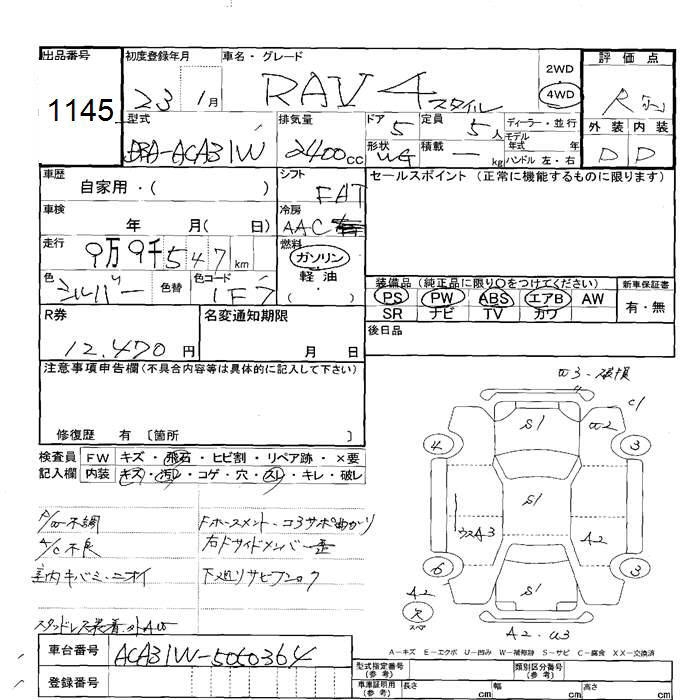 出品番号 初度登録年月 車名・グレード 評価点
1145 23 1月 RAV4 スタイル 2WD 4WD R
外装 内装
D D
型式 排気量 ドア 定員 ディーラー・並行
DBA-ACA31W 2400cc 5 5人 モデル年式 年
形状 積載 ハンドル 左・右
WG — kg
車歴 シフト セールスポイント (正常に機能するものに限ります)
自家用・( ) FAT
車検 冷房
年 月( 日) AAC
走行 燃料
9万9千547km ガソリン
軽油
( )
色 シルバー 色替 色コード 1F7
装備品 (純正品に限り○をつけてください) 新車保証書
PS PW ABS エアB AW 有・無
SR ナビ TV カワ
R券 名変通知期限 後日品
12,470円 月 日
注意事項申告欄(不具合内容等は具体的に記入して下さい)
修復歴 有 〔箇所 〕
検査員 FW キズ・飛石・ヒビ割・リペア跡・×要
記入欄 内装 キズ・汚レ・コゲ・穴・スレ・キレ・破レ
P/W不調 Fホースメント・コアサポ曲がり
A/C不良 右Fサイドメンバー歪
室内キバミ・ニオイ 下廻りサビ
スタッドレス装着
W3・破損
C1
S1
W2
4
3
S1
A2
6
3
S1
A2
スペア
A2・U3
A－キズ E－エクボ U－凹み W－補修跡 S－サビ C－腐食 XX－交換済
車台番号 ACA31W-5060364
登録番号
型式指定番号 (参考) 類別区分番号 (参考)
車庫証明用 (参考) 長さ cm 幅 cm 高さ cm